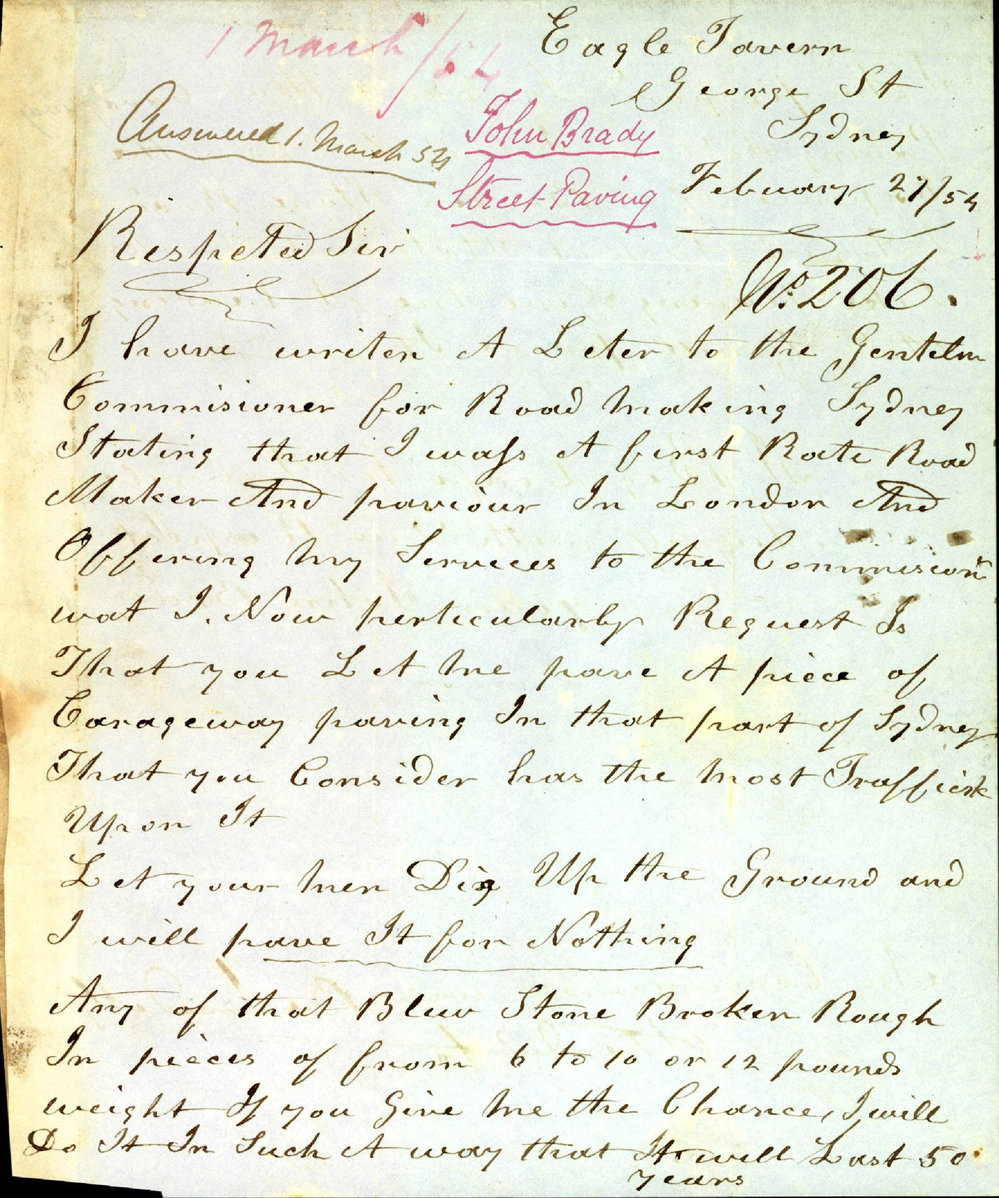 1 March/54
Eagle Tavern
George St
Sydney
Answered 1. March 54
John Brady
Street Paving
Febuary 27/54
Respected Sir
No. 206.
I have writen A Leter to the Gentelm
Commisioner for Road making Sydney
Stating that I wass A first Rate Road
Maker And paviour In London And
Offering my Serveces to the Commision
wat I. Now perticularly Request Is
That you Let me pave A piece of
Carageway paving In that part of Sydney
That you Consider has the most Traffick
Upon It
Let your men Dig Up the Ground and
I will pave It for Nothing
Any of that Blew Stone Broken Rough
In pieces of from 6 to 10 or 12 pounds
weight If you Give me the Chance, I will
Do It In Such A way that It will Last 50
years